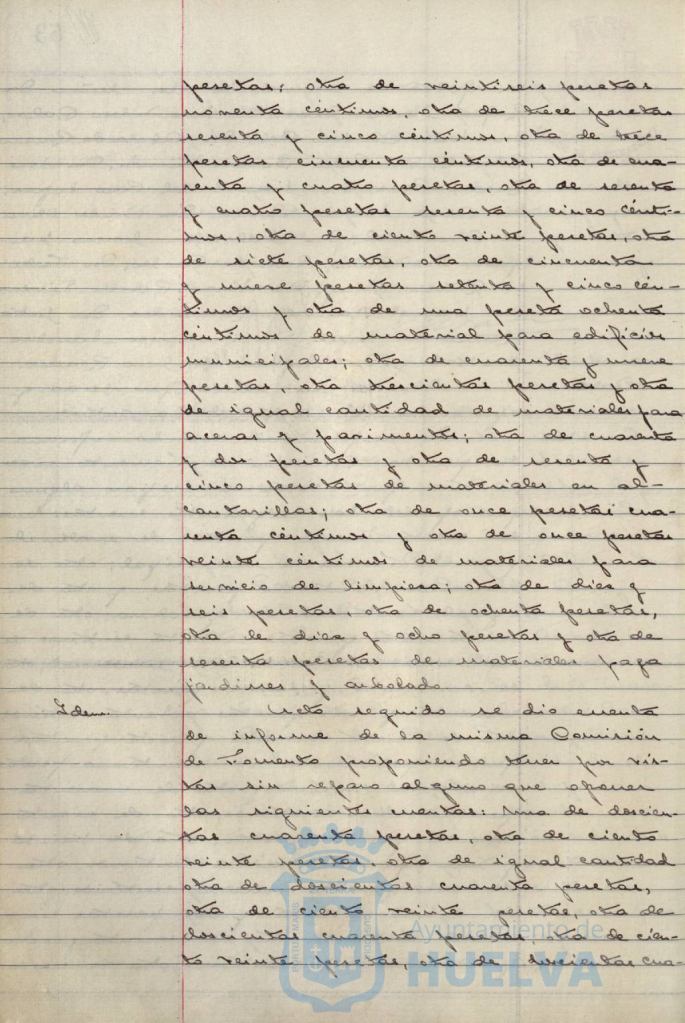 pesetas; otra de veintiseis pesetas
noventa céntimos, otra de trece pesetas
sesenta y cinco céntimos, otra de trece
pesetas cincuenta céntimos, otra de cua-
renta y cuatro pesetas, otra de sesenta
y cuatro pesetas sesenta y cinco cénti-
mos, otra de ciento veinte pesetas, otra
de siete pesetas, otra de cincuenta
y nueve pesetas setenta y cinco cén-
timos y otra de una peseta ochenta
céntimos de material para edificios
municipales; otra de cuarenta y nueve
pesetas, otra trescientas pesetas y otra
de igual cantidad de materiales para
aceras y pavimentos; otra de cuarenta
y dos pesetas y otra de sesenta y
cinco pesetas de materiales en al-
cantarillas; otra de once pesetas cua-
renta céntimos y otra de once pesetas
veinte céntimos de materiales para
servicio de limpieza; otra de diez y
seis pesetas, otra de ochenta pesetas,
otra de diez y ocho pesetas y otra de
sesenta pesetas de materiales paga
jardines y arbolado
Idem. Acto seguido se dio cuenta
de informe de la misma Comisión
de Fomento proponiendo tener por vis-
tas sin reparo alguno que oponer
las siguientes cuentas: Una de doscien-
tas cuarenta pesetas, otra de ciento
veinte pesetas, otra de igual cantidad
otra de doscientas cuarenta pesetas,
otra de ciento veinte pesetas, otra de
doscientas cuarenta pesetas, otra de cien-
to veinte pesetas, otra de doscientas cua-
Ayuntamiento de
HUELVA